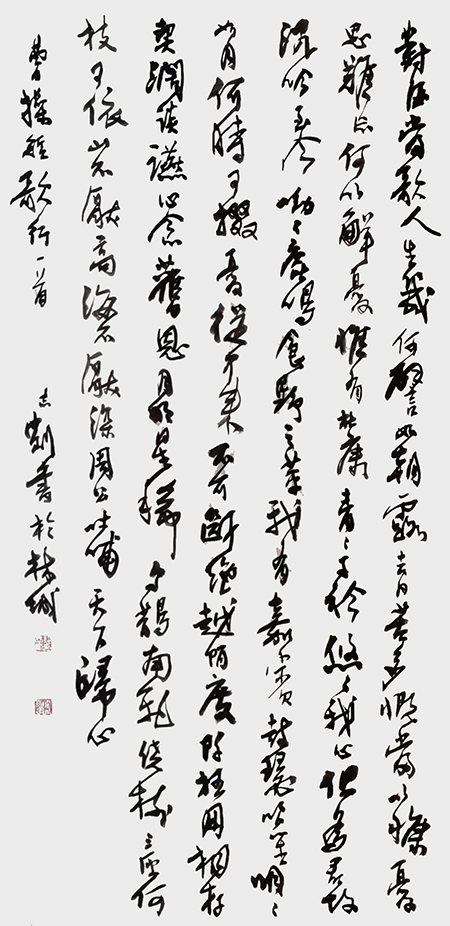 對酒當歌人生幾何譬如朝露去日苦多慨當以慷憂
思難忘何以解憂惟有杜康青〻子衿悠〻我心但為君故
沉吟至今呦〻鹿鳴食野之苹我有嘉賓鼓瑟吹笙明〻
如月何時可掇憂從中來不可斷絕越陌度阡枉用相存
契闊談讌心念舊恩月明星稀烏鵲南飛繞樹三匝何
枝可依山不厭高海不厭深周公吐哺天下歸心
曹操短歌行一首 志書於林城